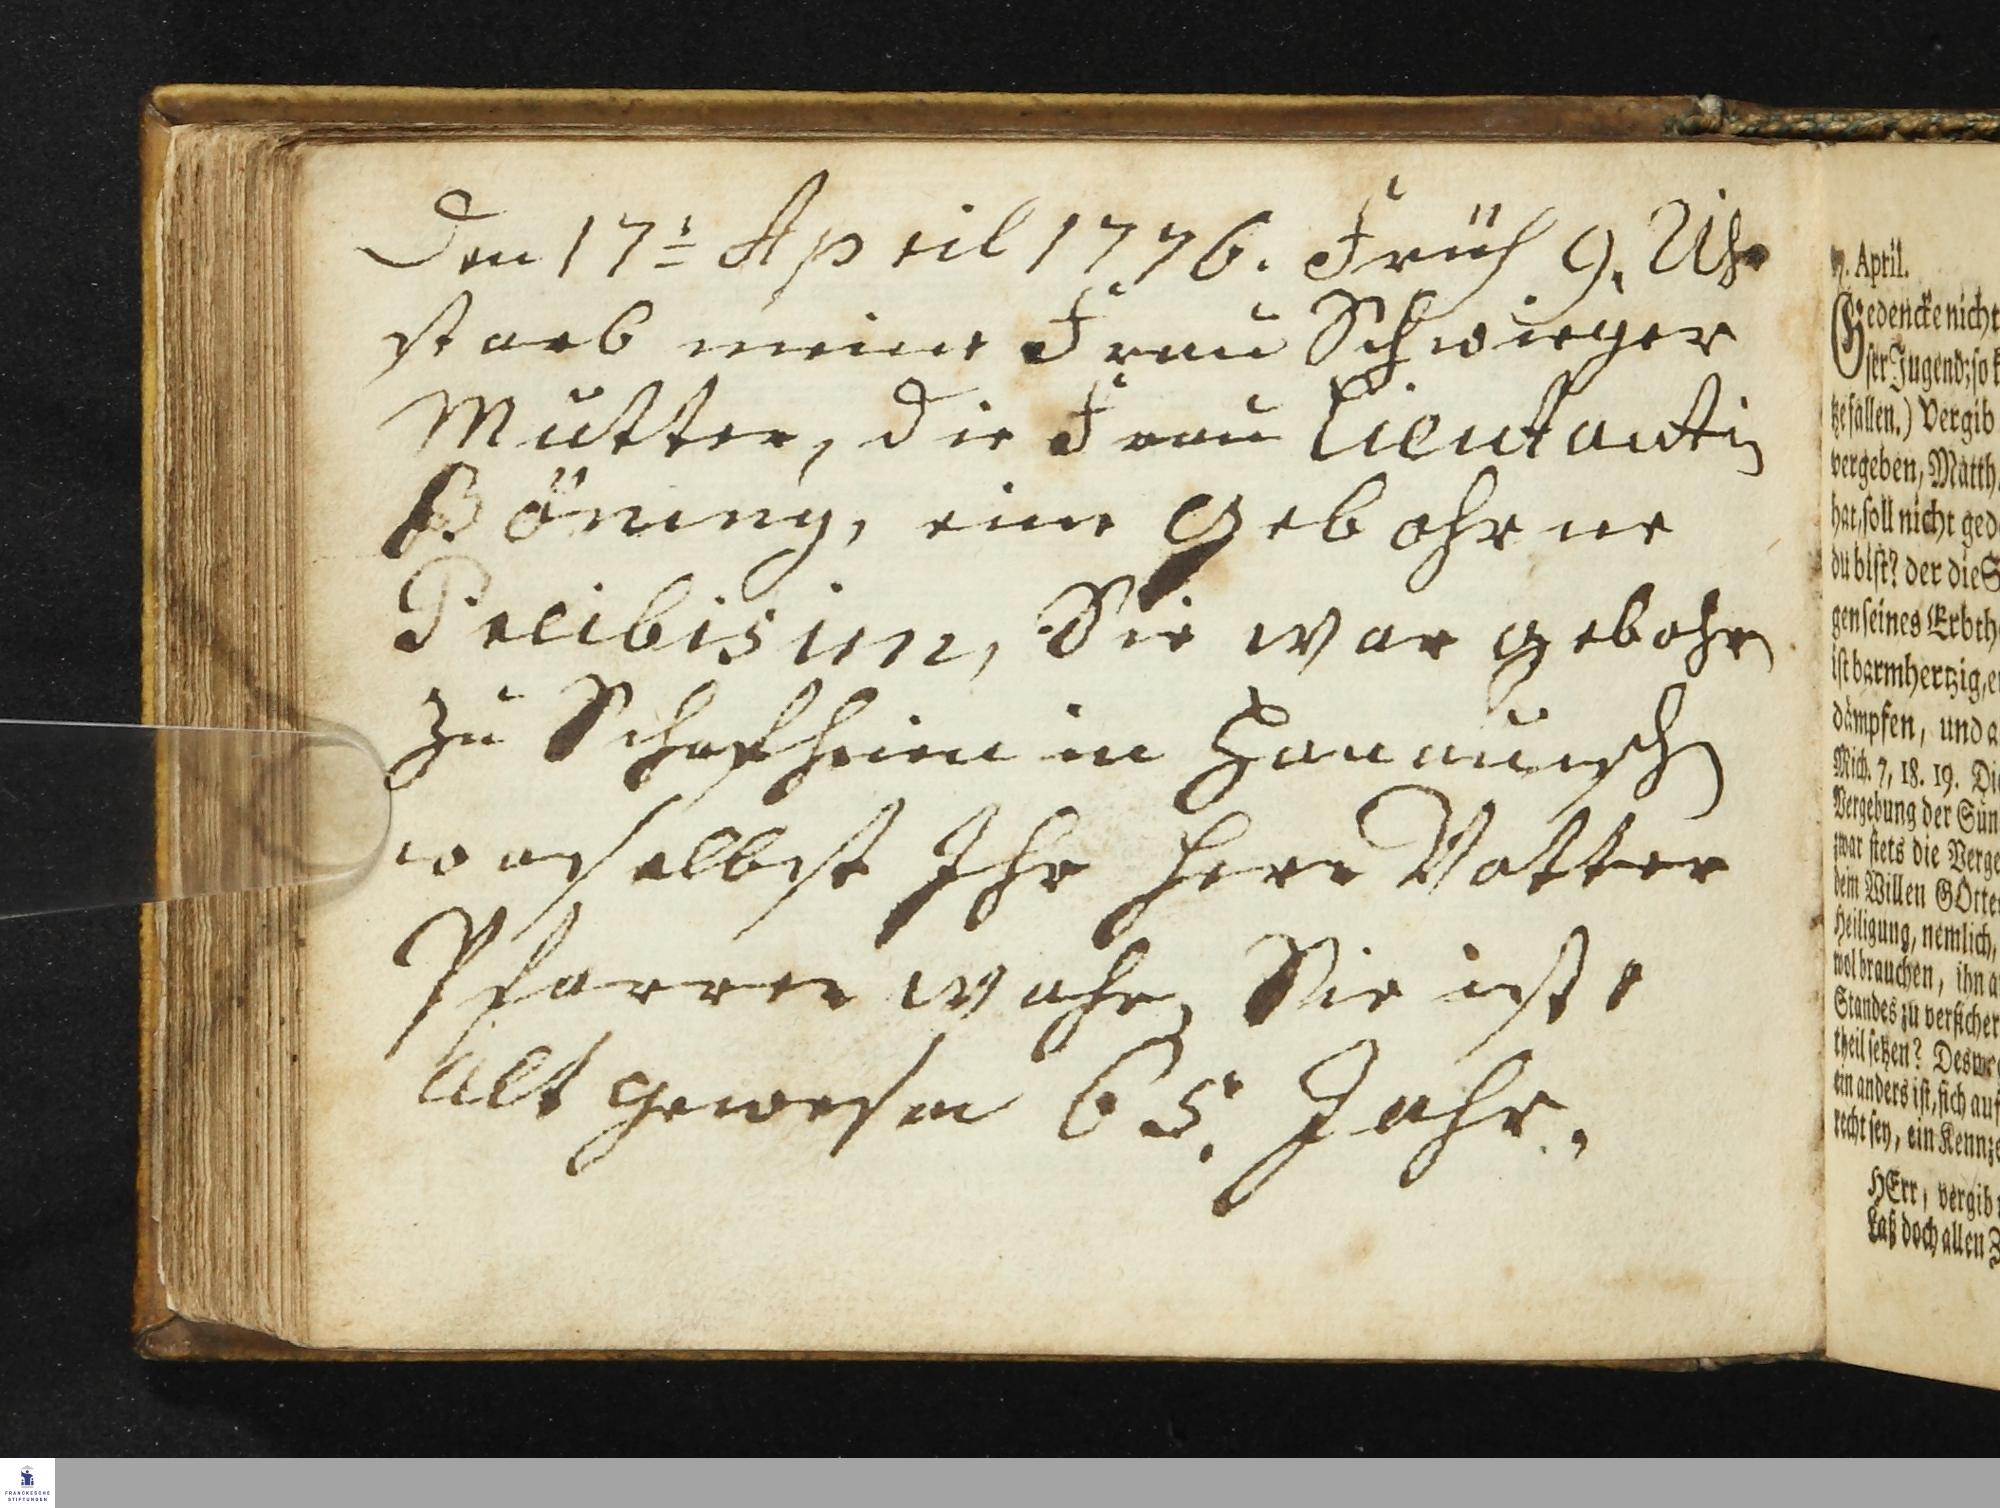 Den 17t April 1776. Früh 9. Uhr
starb meine Frau Schwieger
Mutter, die Frau Lieutantin
Böning, eine gebohrne
Pelibisien, Sie war gebohrn
zu Schafheim in Hanauisch
woselbst Ihr Herr Vatter
Pfarrer wahr, Sie ist
alt gewesen 65. Jahr.
7. April.
Gedencke nicht
ser Jugend; so k
tze fallen.) Vergib
vergeben, Matth.
hat, soll nicht ged
du bist? der die S
gen seines Erbth
ist barmhertzig, er
dämpfen, und a
Mich. 7, 18. 19. Di
Vergebung der Sün
zwar stets die Verge
dem Willen GOtte
Heiligung, nemlich,
wol brauchen, ihn a
Standes zu versicher
theil setzen? Deswe
ein anders ist, sich auf
recht sey, ein Kennze
HErr, vergib
Laß doch allen Z
FRANCKESCHE
STIFTUNGEN